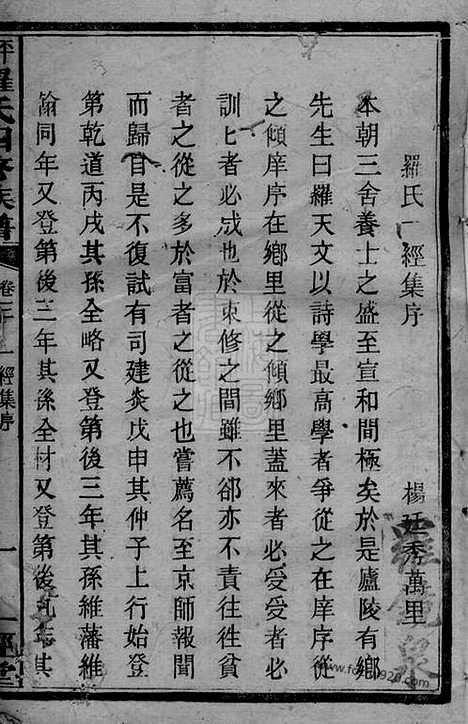 羅氏一經集序
楊廷秀萬里
本朝三舍養士之盛至宣和間極矣於是廬陵有鄉
先生曰羅天文以詩學最高學者爭從之在庠序從
之傾庠序在鄉里從之傾鄉里蓋來者必受受者必
訓匕者必成也於束修之間雖不卻亦不責往往貧
者之從之多於富者之從之也嘗薦名至京師報聞
而歸自是不復試有司建炎戊申其仲子上行始登
第乾道丙戌其孫全略又登第後三年其孫維藩維
翰同年又登第後三年其孫全材又登第後九年其
羅氏四修族譜
卷二
一經集序
一